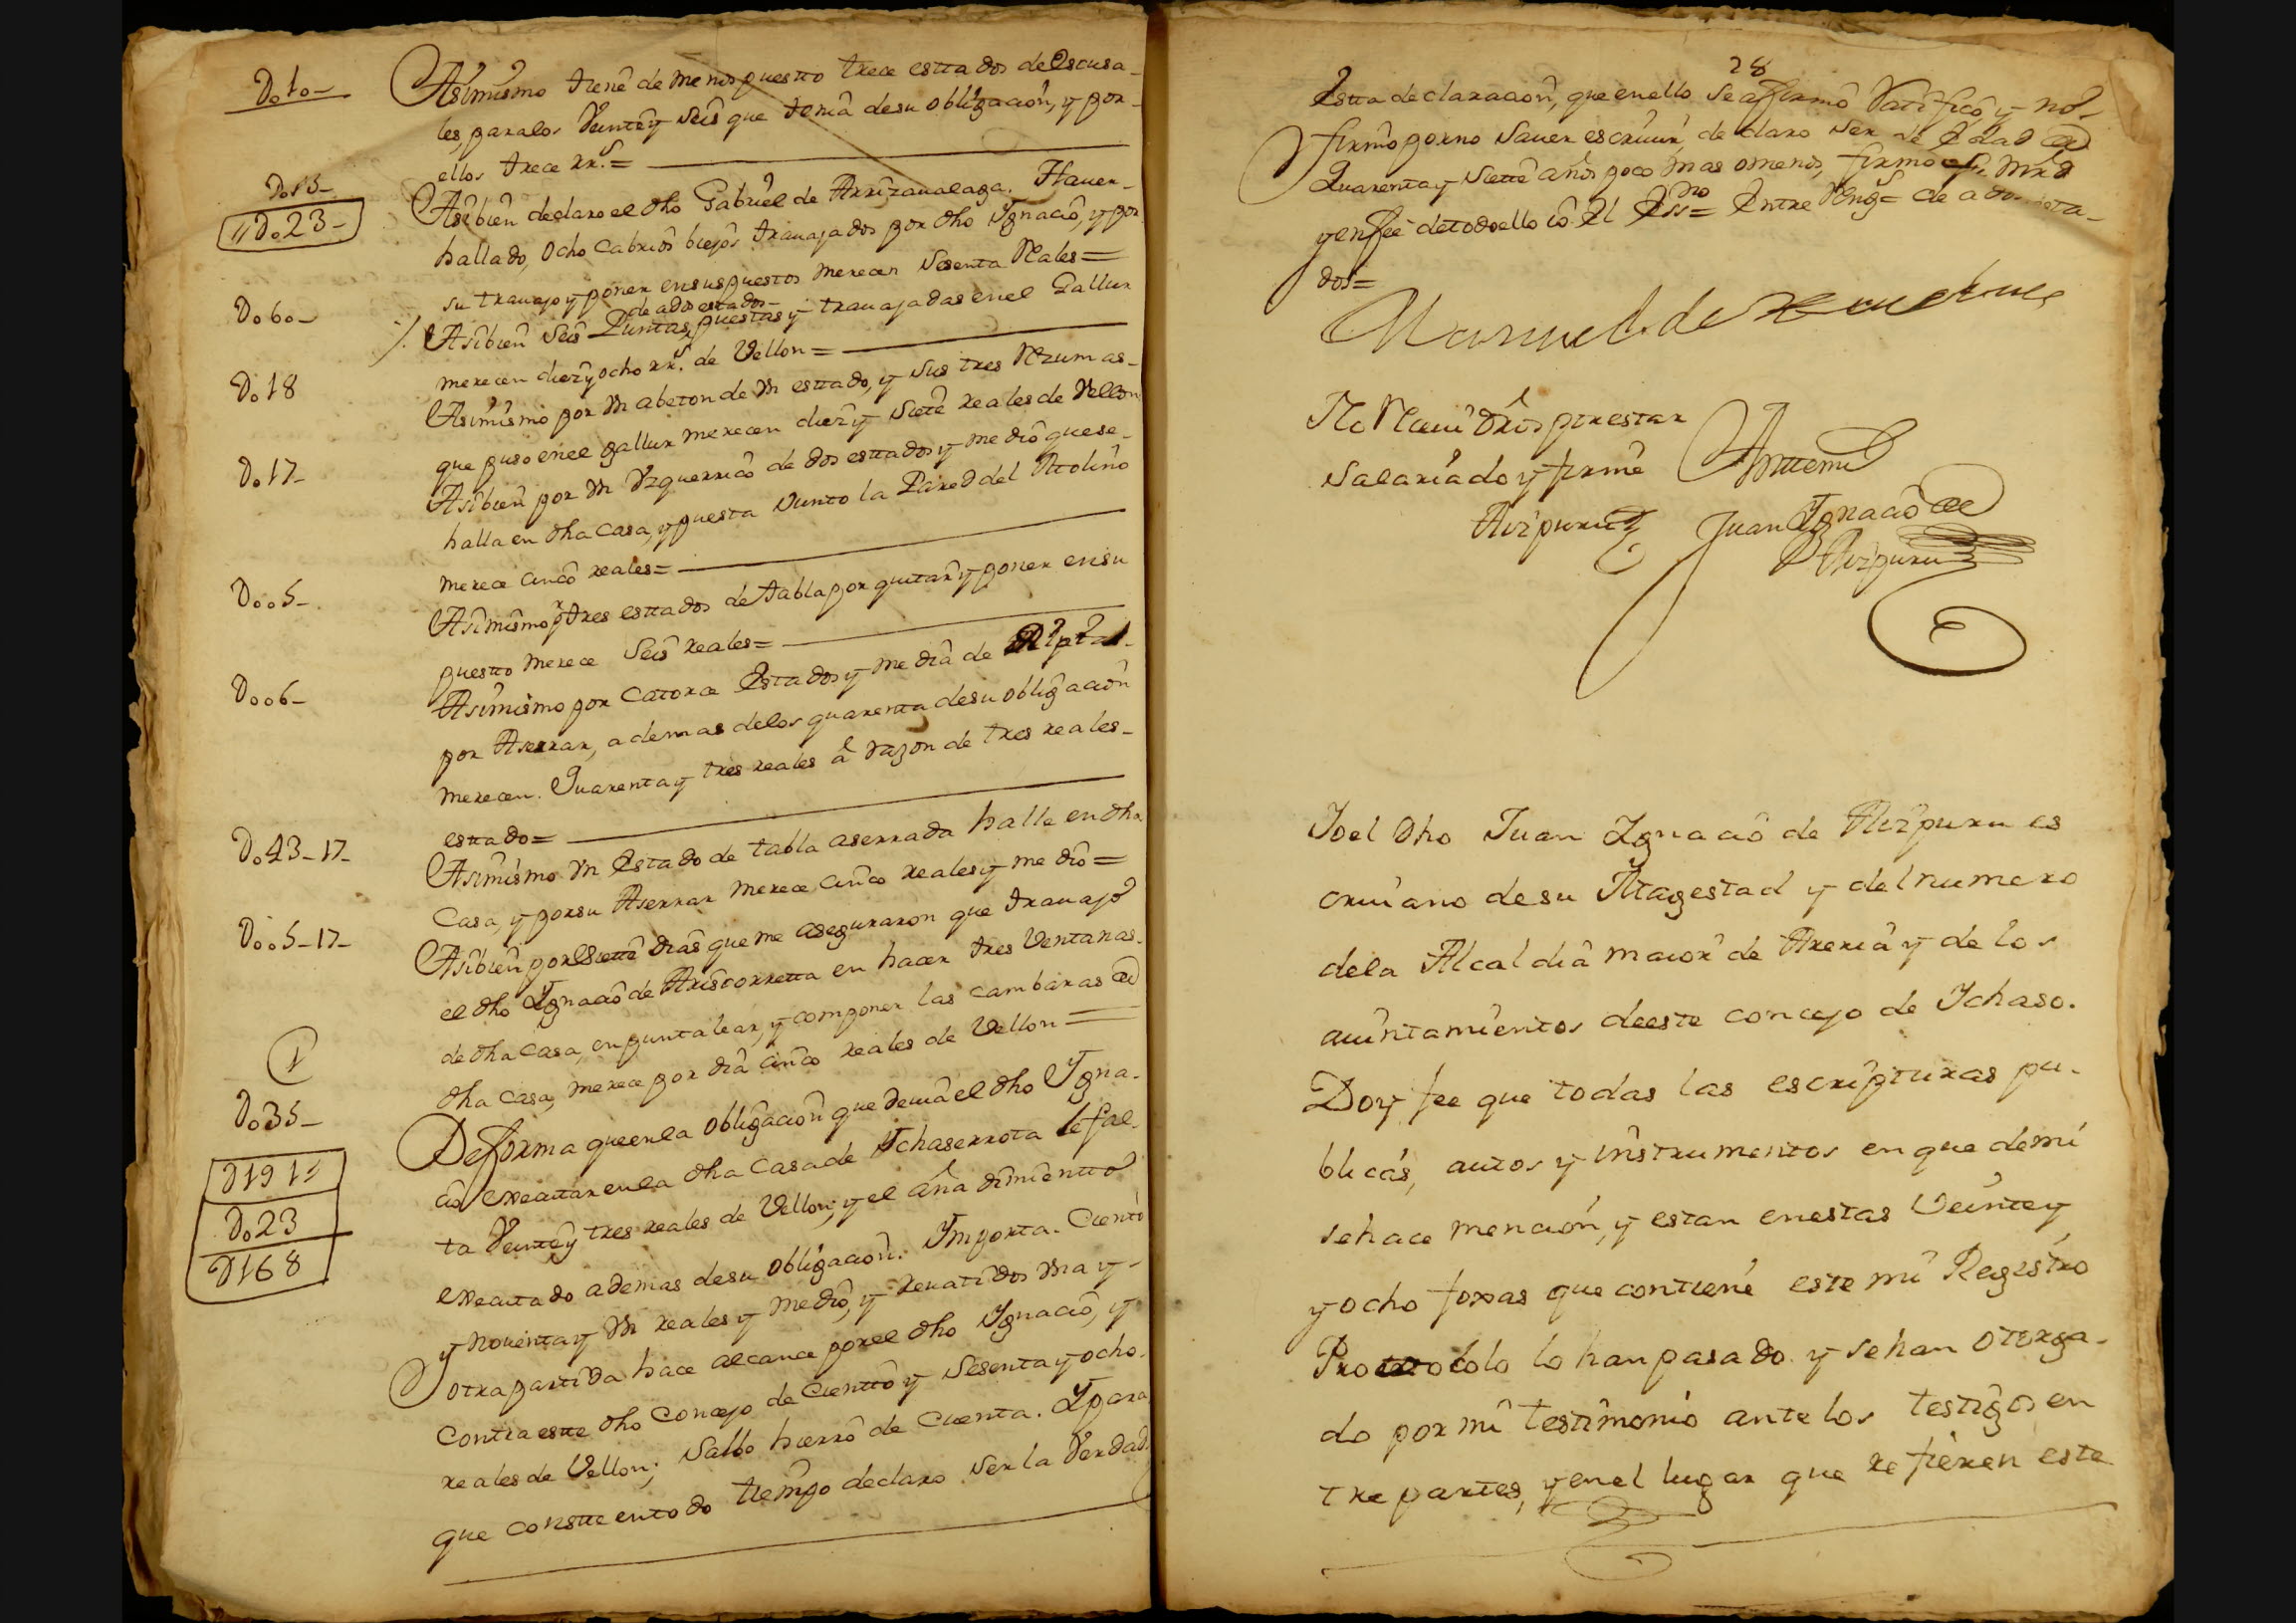 D.10-
Asimismo tiene de menos puestto trece esttados de Escusa-
les, para los Veintey Seis que tenia desu obligacion, y por-
ellos trece rr.s =
D.13-
D.23-
Asibien declaro el dho Gabriel de Arrizavalaga. Haver-
hallado, Ocho Cabrios biejos travajados por dho Ygnacio, y por
su travajo y poner ensus puestos merecen Sesenta Reales=
D.60-
de ados estados-
Asibien Seis Puntas, puestas y travajadas enel Gallur
merecen diezy ocho rr.s de Vellon=
D.18
Asimismo por Vn abeton de Vn esttado, y sus tres
que puso enel gallur merecen diezy Siete reales de Vellon
D.17-
Asibien por Vn Yzquerrico de dos esttados y medio quese-
halla en dha Casa, y puesta Junto la Pared del Molino
merece cinco reales=
D.o5-
Asimismo pr tres esttados de tabla por quitar y poner ensu
puestto merece Seis reales=
D.o6-
Asimismo por Catorce Estados y media de
por Aserrar, ademas delos quarenta desu obligacion
merecen. Quarenta y tres reales â razon de tres reales-
esttado=
D.43-17-
Asimismo Vn Estado de tabla aserrada halle en dha
Casa, y porsu Aserrar merece cinco reales y medio=
D.o5-17-
Asibien por Siette dias que me aseguraron que travajo
el dho Ygnacio de Aristorretta en hacer tres Ventanas-
de dha Casa, en puntalear, y componer las cambaras de
dha Casa, merece por dia cinco reales de Vellon=
D.35-
Deforma queenla obligacion que devia el dho Ygna-
cio executar enla dha Casa de Ychaserrota le fal-
ta Veintey tres reales de Vellon; y el añadimientto
executado ademas desu obligacion. Ymporta. Ciento
y noventay Vn reales y medio, y revatidos Vna y-
otra partida hace alcance por el dho Ygnacio, y
contra este dho Concejo de Cientto y Sesentay ocho.
reales de Vellon; Salbo hierro de Cuenta. Y para
que constte entodo tiempo declaro Ser la Verdad
D191
D.23
D168
28
Esta declaracion, que enello se affirmo Ratifico, y no-
firmo porno Saver escriuir, de claro ser de Edad de
Quarentay Siette años poco mas omenos, firmo
y enfee detodoello io El Essno= Entre Rengs= de ados esta-
dos=
Manuel de
No Recivi dros por estar
Salariado y firme
Aizpuru
Antemi
Juan Ygnacio de
Aizpuru
Yoel dho Juan Ygnacio de Aizpuru es
criuano desu Magestad y del numero
dela Alcaldia maior de Areria y de los
auintamientos deeste concejo de Ychaso.
Doy fee que todas las escripturas pu-
blicas, autos y instrumentos en que demi
sehace mencion, y estan enestas Veintey
y ocho foxas que contiene este mi Registro
Prottocolo lo han pasado y sehan otorga-
do por mi testimonio ante los testigos en
tre partes, y enel lugar que refieren este